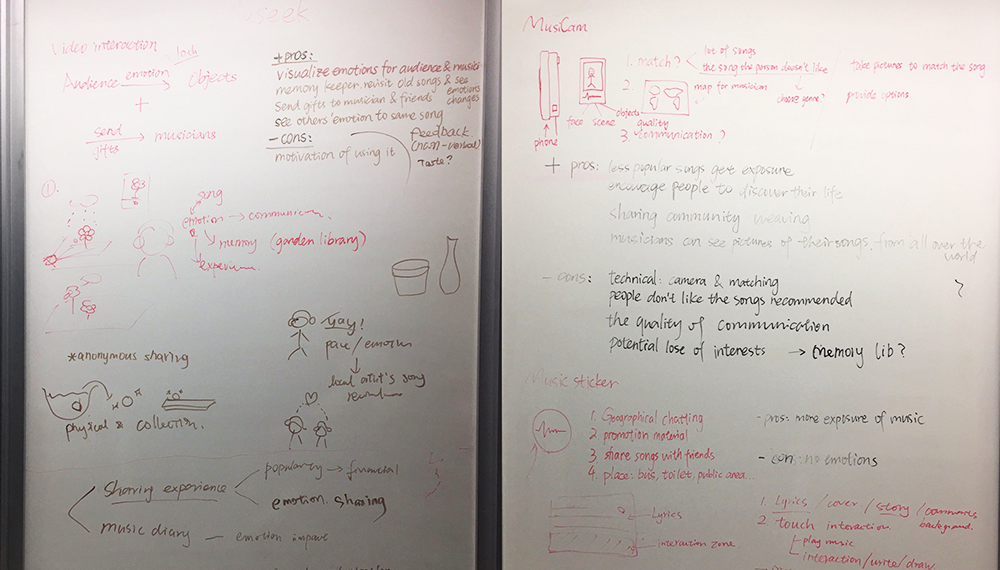 seek
Video interaction
Audience emotion Objects
+
send gifts musicians
+pros:
visualize emotions for audience & musici
memory keeper. revisit old songs & see emotions changes
send gifts to musician & friends
see others' emotion to same song
- cons:
motivation of using it
feedback
(non-verbal)
Taste?
1.
song
emotion → communica
memory (garden library)
experience.
Yay!
local artist's song
*anonymous sharing
physical & collection.
Sharing experience
popularity → financial
emotion sharing
music diary — emotion
MusiCam
phone
face scene
objects
1. match?
lot of songs
the song the person doesn't like
take pictures to match the song
2.
map for musician
choose genre?
provide options
quality
3. communication?
+ pros: less popular songs get exposure
encourage people to discover their life
sharing community weaving
musicians can see pictures of their songs, from all over the world
- cons: technical: camera & matching
people don't like the songs recommended
the quality of communication
potential lose of interests → memory lib?
?
Music sticker
1. Geographical chatting
2. promotion material
3. share songs with friends
4. place: bus, toilet, public area...
- pros: more exposure of music
- con: no emotions
Lyrics
interaction zone
1. Lyrics / cover / story / comments
background.
2. touch interaction.
play music
interaction/write/draw